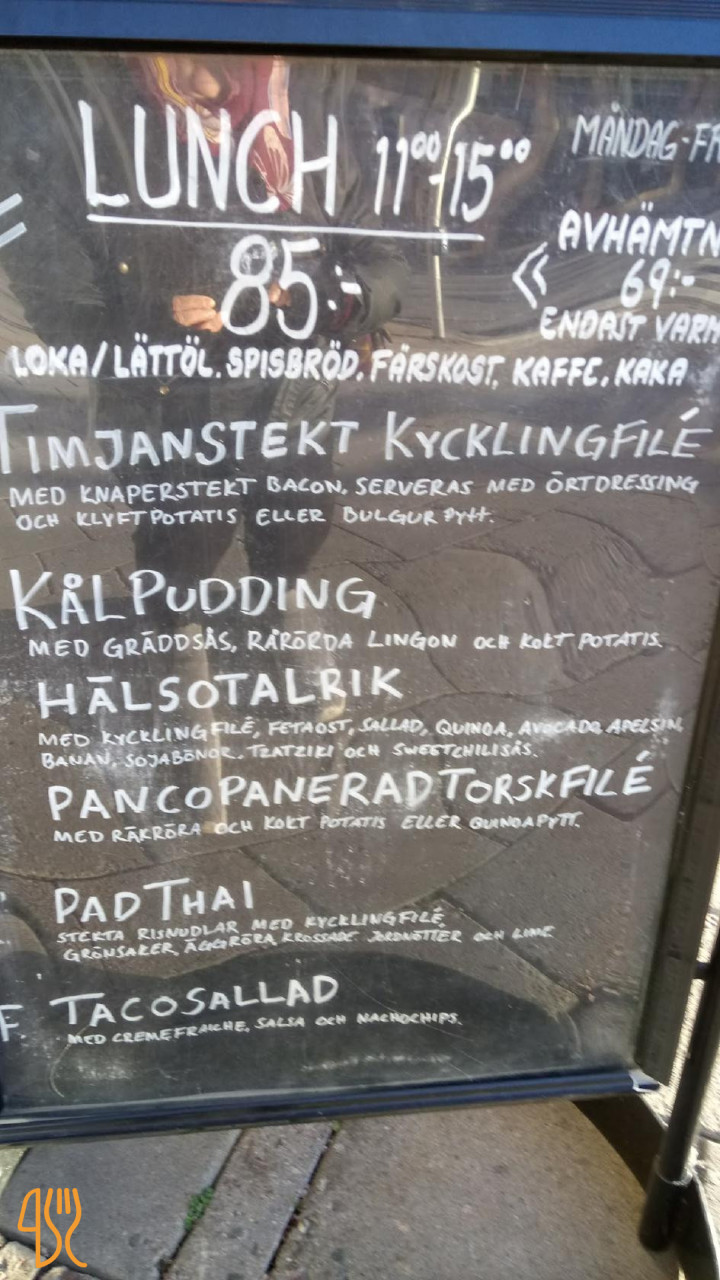 LUNCH 11⁰⁰-15⁰⁰
85:-
MÅNDAG-FR
AVHÄMTN
« 69:-
ENDAST VARM
LOKA/LÄTTÖL. SPISBRÖD. FÄRSKOST. KAFFE. KAKA
TIMJANSTEKT KYCKLINGFILÉ
MED KNAPERSTEKT BACON. SERVERAS MED ÖRTDRESSING
OCH KLYFTPOTATIS ELLER BULGUR PYTT.
KÅLPUDDING
MED GRÄDDSÅS, RÅRÖRDA LINGON OCH KOKT POTATIS.
HÄLSOTALRIK
MED KYCKLINGFILÉ, FETAOST, SALLAD, QUINOA, AVOCADO, APELSIN,
BANAN, SOJABÖNOR, TZATZIKI OCH SWEETCHILISÅS.
PANCOPANERAD TORSKFILÉ
MED RÄKRÖRA OCH KOKT POTATIS ELLER QUINOAPYTT.
PAD THAI
STEKTA RISNUDLAR MED KYCKLINGFILÉ,
GRÖNSAKER, ÄGGRÖRA, KROSSADE JORDNÖTTER OCH LIME.
F. TACOSALLAD
MED CREMEFRAICHE, SALSA OCH NACHOCHIPS.